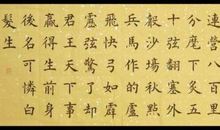 連營八百里
分麾下炙五
十弦翻塞外
聲沙場秋點
兵馬作的盧
飛快弓如霹
靂弦驚了却
君王天下事
贏得生前身
後名可憐白
髮生